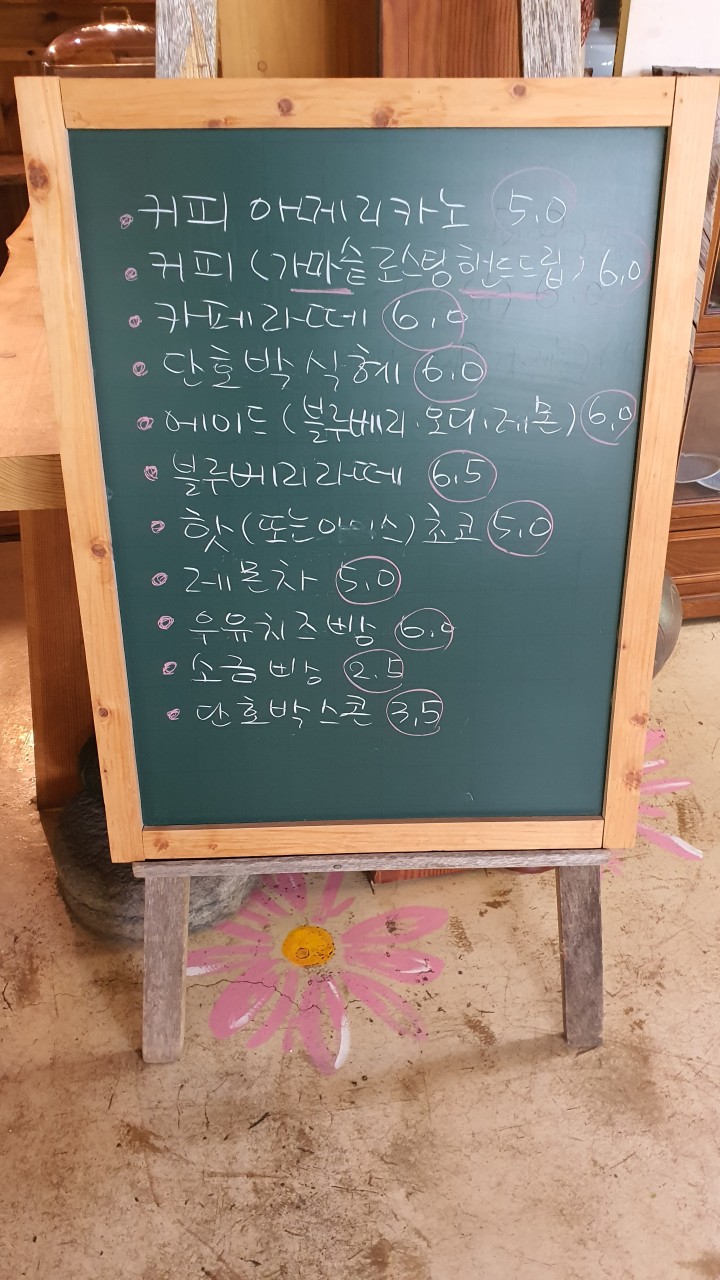 커피 아메리카노 5.0
커피 (가마솥 로스팅 핸드드립) 6.0
카페라떼 6.0
단호박 식혜 6.0
에이드 (블루베리·오디·레몬) 6.0
블루베리라떼 6.5
핫 (또는아이스) 초코 5.0
레몬차 5.0
우유치즈빵 6.0
소금빵 2.5
단호박스콘 3.5